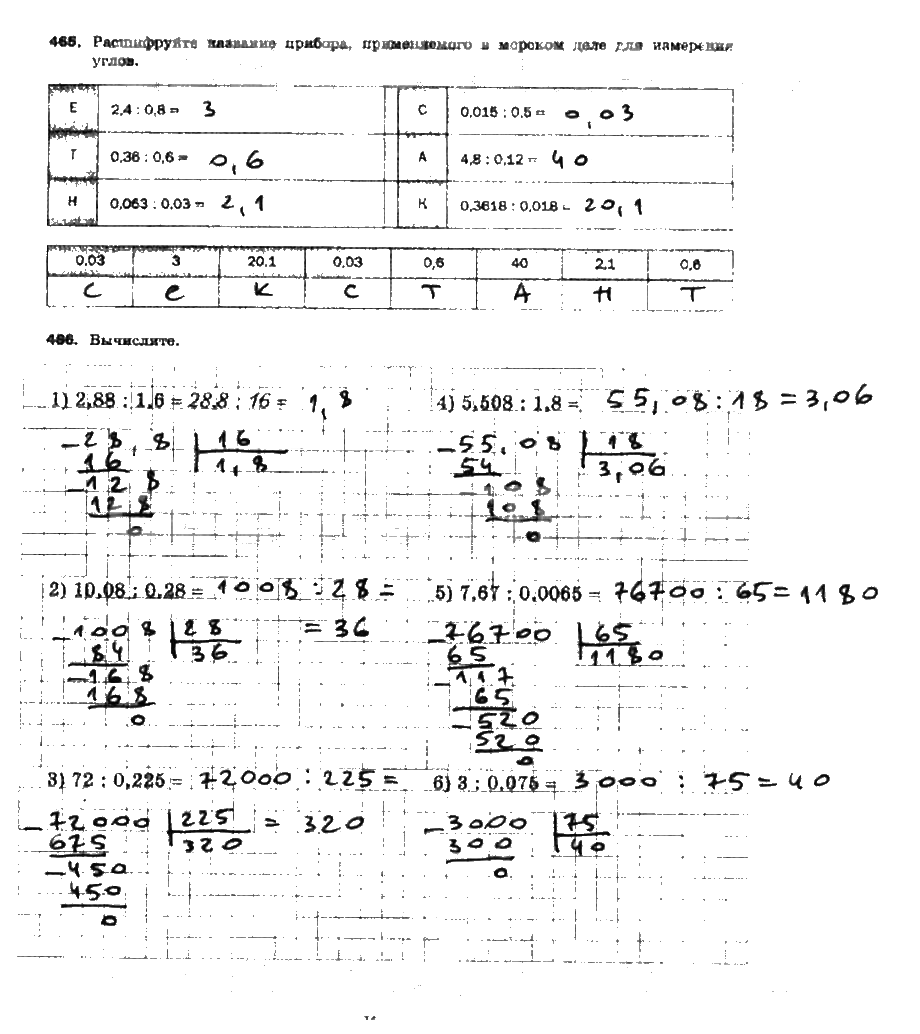 465. Расшифруйте название прибора, применяемого в морском деле для измерения
углов.
Е 2,4 : 0,8 = 3 С 0,015 : 0,5 = 0,03
Т 0,36 : 0,6 = 0,6 А 4,8 : 0,12 = 40
Н 0,063 : 0,03 = 2,1 К 0,3618 : 0,018 = 20,1
0,03 3 20,1 0,03 0,6 40 2,1 0,6
С е К С Т А Н Т
466. Вычислите.
1) 2,88 : 1,6 = 28,8 : 16 = 1,8 4) 5,508 : 1,8 = 55,08 : 18 = 3,06
- 28,8 | 16 - 55,08 | 18
16 1,8 54 3,06
- 12 8 - 108
12 8 108
0 0
2) 10,08 : 0,28 = 1008 : 28 = 5) 7,67 : 0,0065 = 76700 : 65 = 1180
- 1008 | 28 = 36 - 76700 | 65
84 36 65 1180
- 168 - 117
168 65
0 - 520
520
0
3) 72 : 0,225 = 72000 : 225 = 6) 3 : 0,075 = 3000 : 75 = 40
- 72000 | 225 = 320 - 3000 | 75
675 320 300 40
- 450 0
450
0